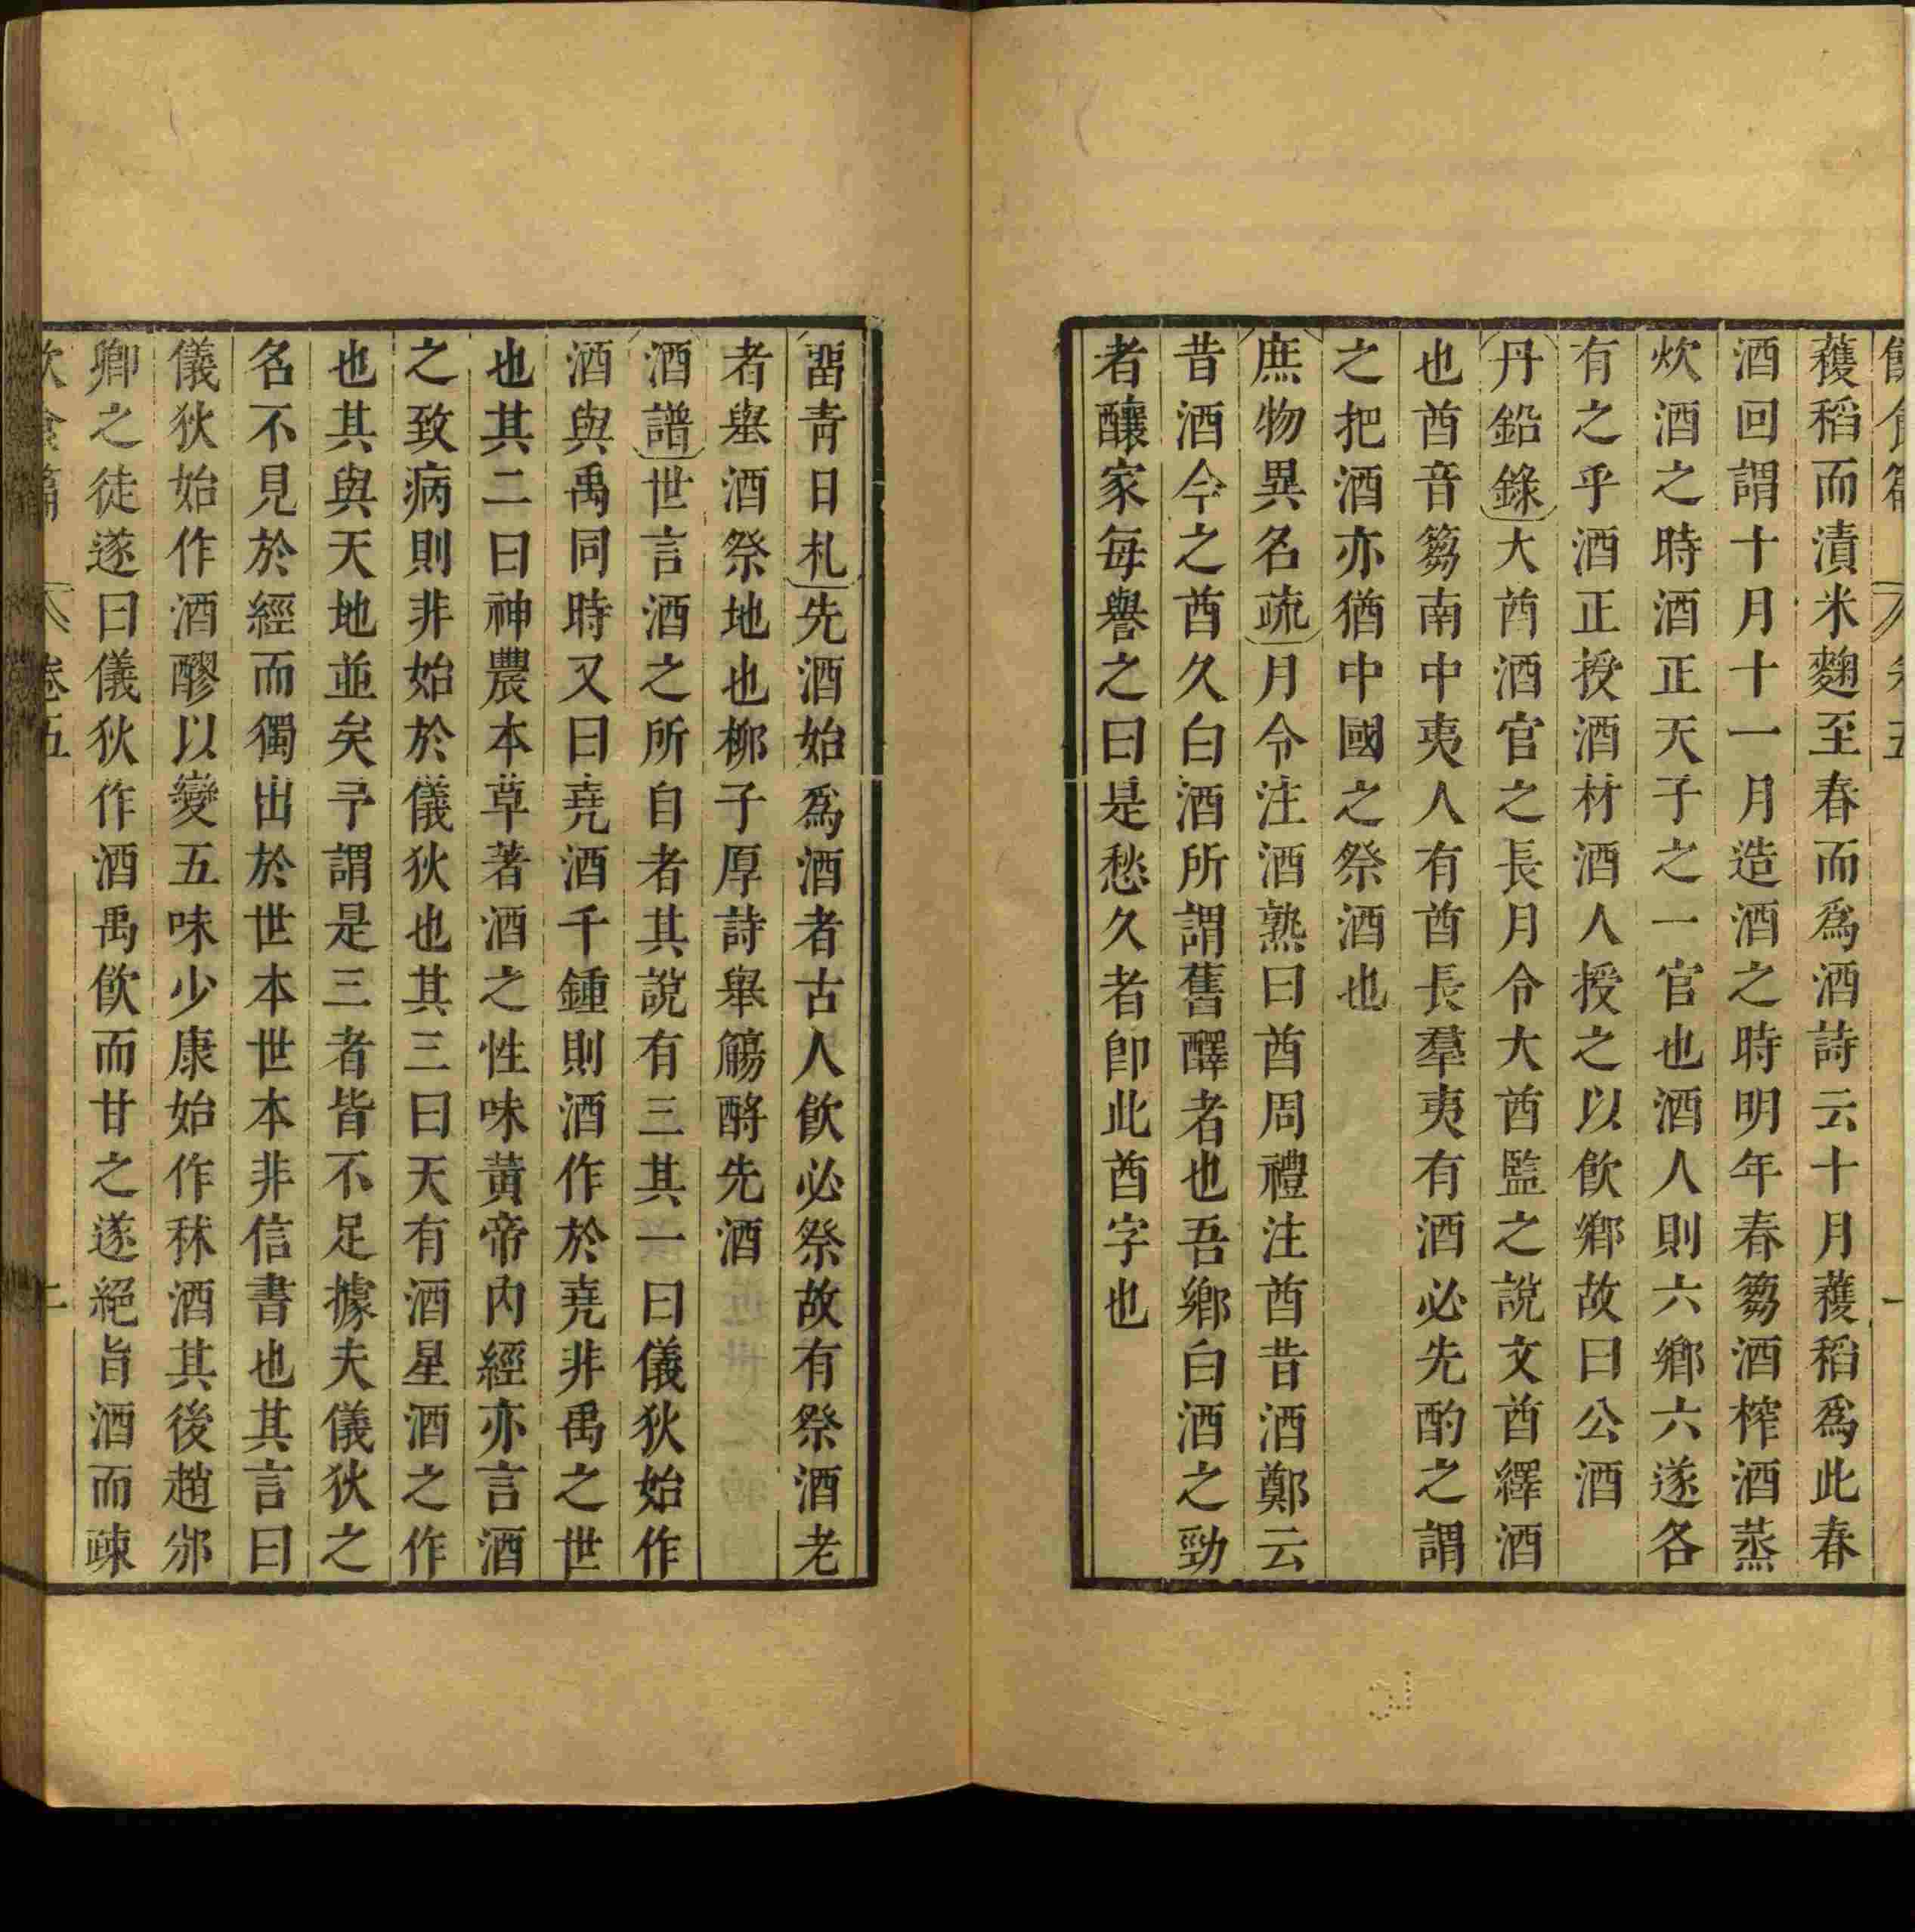 飲食篇 卷五 一
穫稻而漬米麴至春而爲酒詩云十月穫稻爲此春
酒回謂十月十一月造酒之時明年春篘酒榨酒蒸
炊酒之時酒正天子之一官也酒人則六鄉六遂各
有之乎酒正授酒材酒人授之以飲鄉故曰公酒
丹鉛錄大酋酒官之長月令大酋監之說文酋繹酒
也酋音篘南中夷人有酋長羣夷有酒必先酌之謂
之把酒亦猶中國之祭酒也
庶物異名疏月令注酒熟曰酋周禮注酋昔酒鄭云
昔酒今之酋久白酒所謂舊醳者也吾鄉白酒之勁
者釀家每譽之曰是愁久者卽此酋字也
留青日札先酒始爲酒者古人飲必祭故有祭酒老
者舉酒祭地也柳子厚詩舉觴酹先酒
酒譜世言酒之所自者其說有三其一曰儀狄始作
酒與禹同時又曰堯酒千鍾則酒作於堯非禹之世
也其二曰神農本草著酒之性味黃帝內經亦言酒
之致病則非始於儀狄也其三曰天有酒星酒之作
也其與天地並矣予謂是三者皆不足據夫儀狄之
名不見於經而獨出於世本世本非信書也其言曰
儀狄始作酒醪以變五味少康始作秫酒其後趙邠
卿之徒遂曰儀狄作酒禹飲而甘之遂絕旨酒而疎
飲食篇 卷五 二